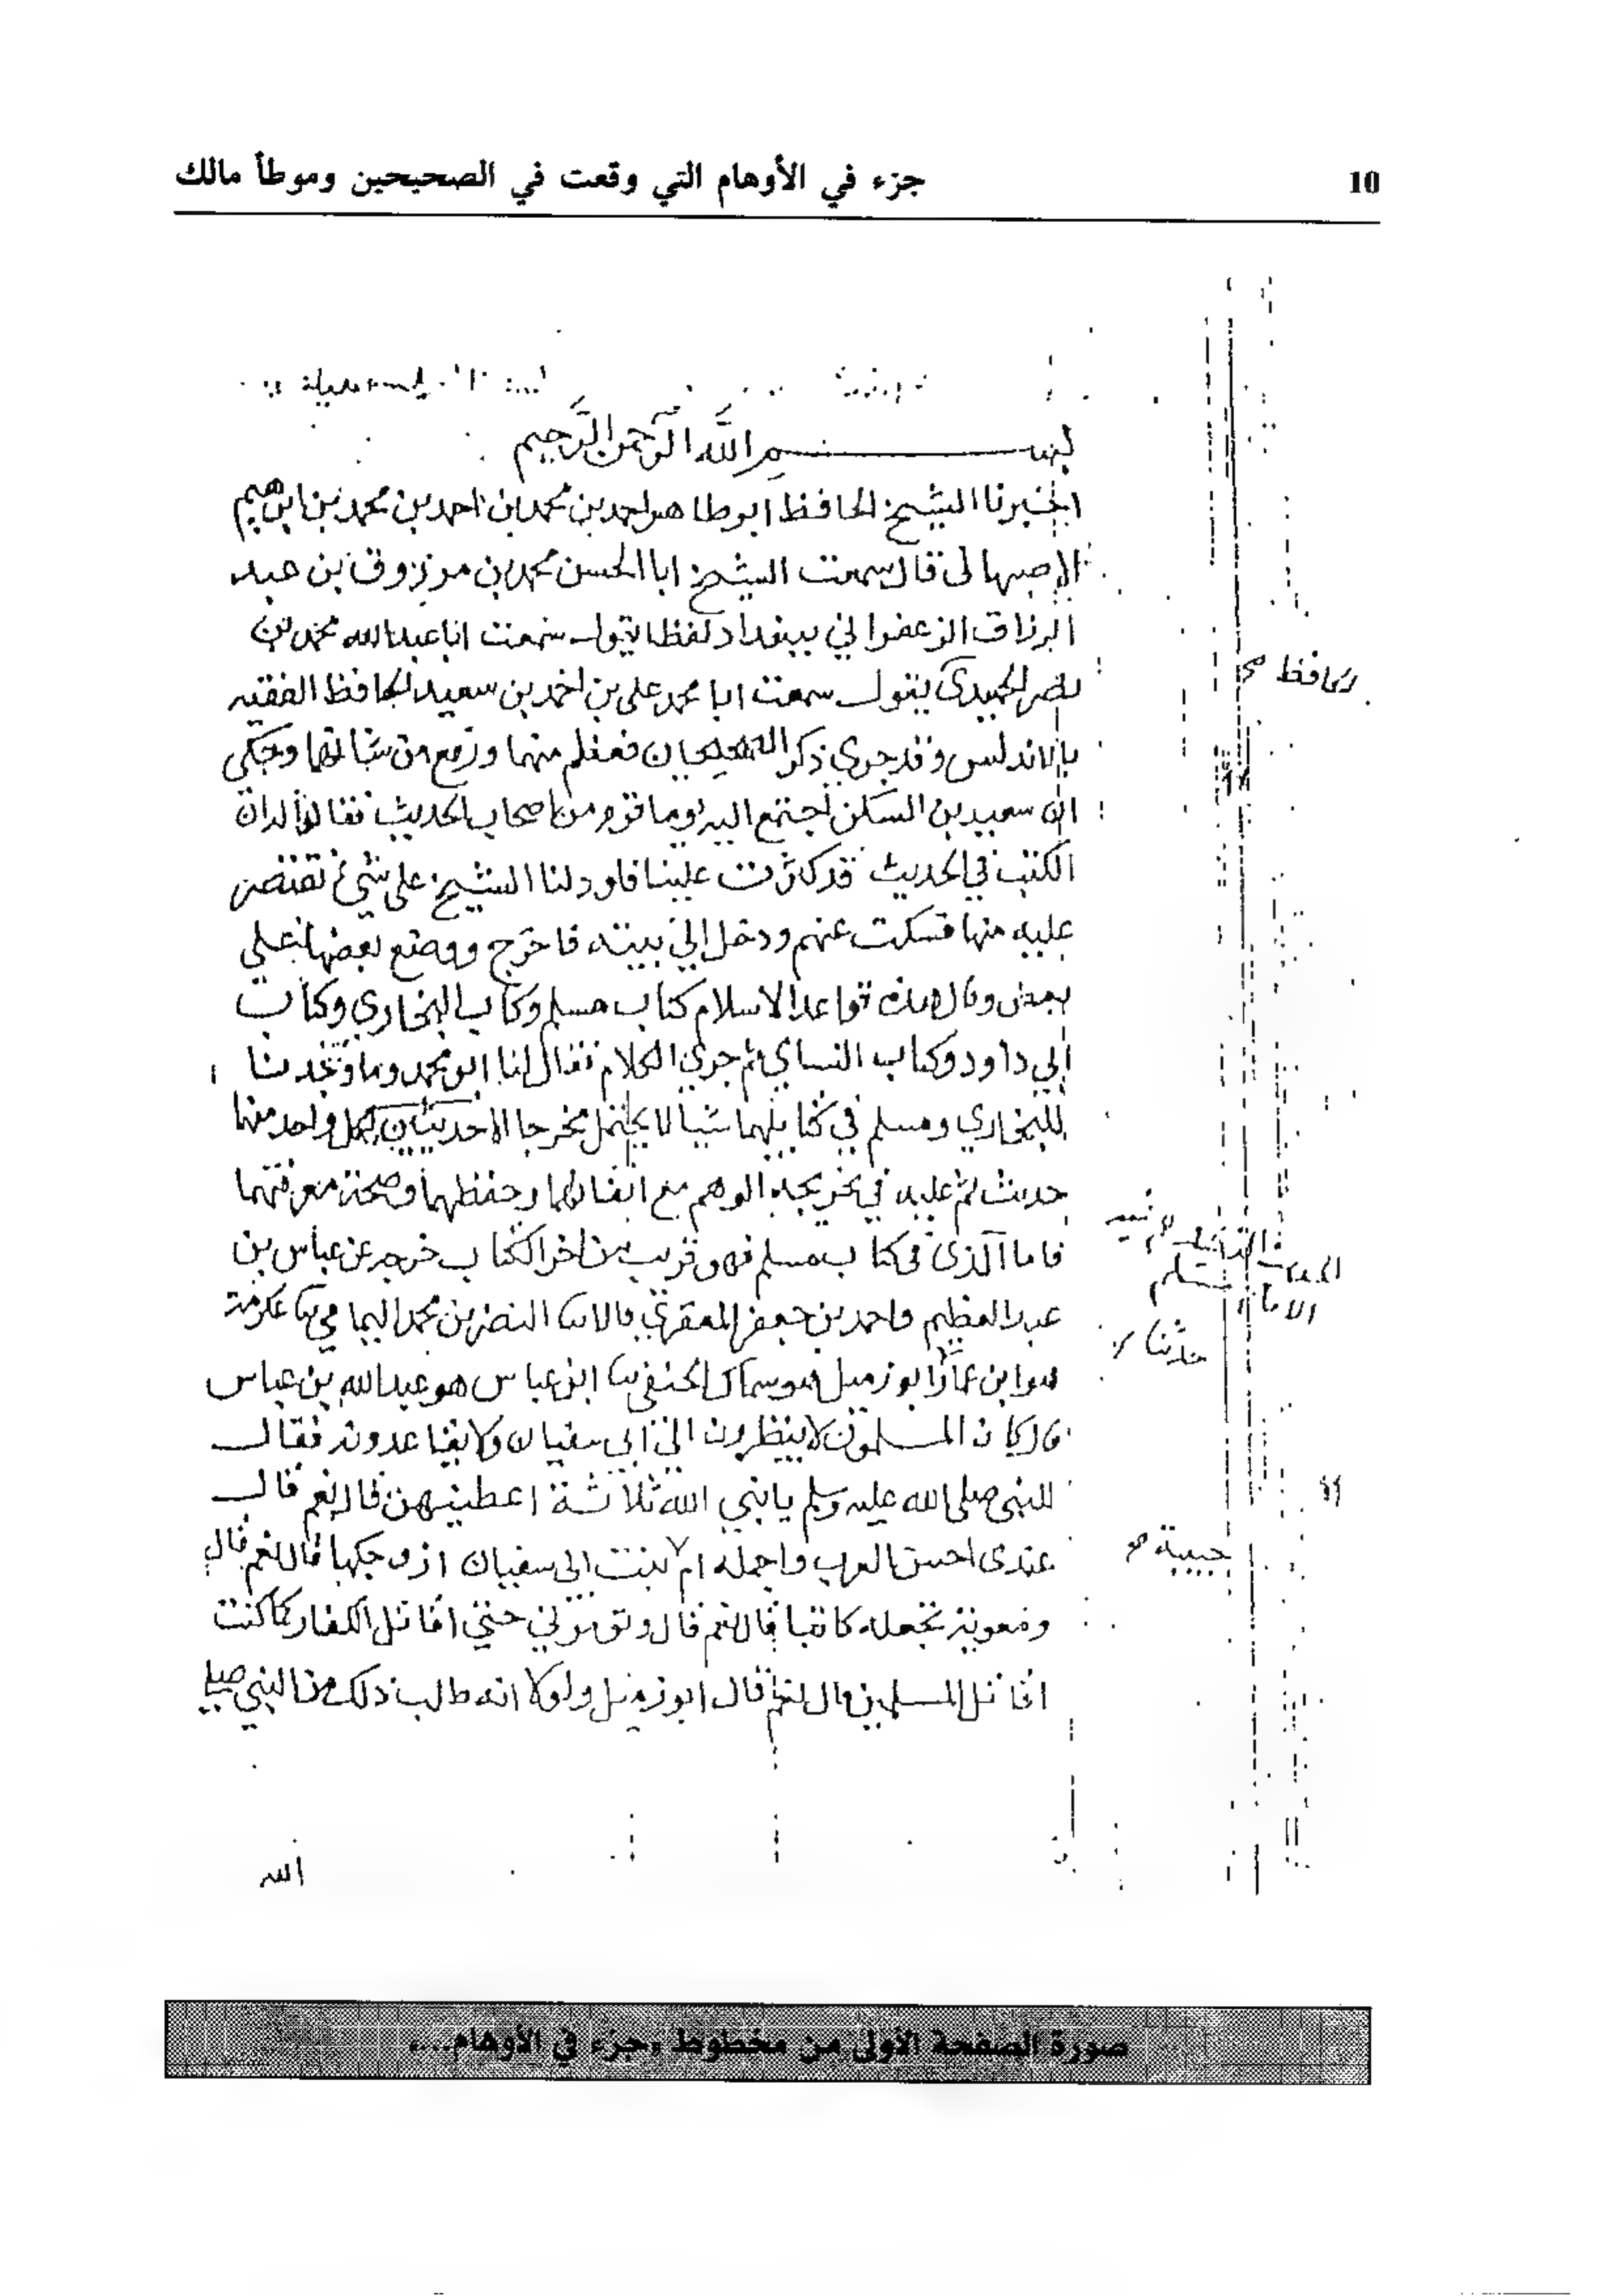 10
جزء في الأوهام التي وقعت في الصحيحين وموطأ مالك
بسم الله الرحمن الرحيم
اخبرنا الشيخ الحافظ ابو طاهر احمد بن محمد بن احمد بن محمد بن ابرهيم
الاصبهاني قال سمعت الشيخ ابا الحسن محمد بن مرزوق بن عبد
الرزاق الزعفراني ببغداد لفظا يقول سمعت ابا عبد الله محمد بن
نصر الحميدي يقول سمعت ابا محمد علي بن احمد بن سعيد الحافظ الفقيه
الحافظ صح
بالاندلس وقد جرى ذكر الصحيحان فعظم منهما ورفع من شانهما وحكى
ان سعيد بن السكن اجتمع اليه يوما قوم من اصحاب الحديث فقالوا له ان
الكتب في الحديث قد كثرت علينا فلو دلنا الشيخ على شي نقتصر
عليه منها فسكت عنهم ودخل الى بيته فاخرج ووضع بعضها على
بعض وقال هذه قواعد الاسلام كتاب مسلم وكتاب البخاري وكتاب
ابي داود وكتاب النساي ثم جرى الكلام فقال لنا ابو محمد وما وجدنا
للبخاري ومسلم في كتابيهما شيا لا يحتمل مخرجا الا حديثين لكل واحد منهما
حديث تم عليه في تخريجه الوهم مع اتقانهما وحفظهما وصحة معرفتهما
فاما الذي في كتاب مسلم فهو قريب من اخر الكتاب خرجه عن عباس بن
عبد العظيم واحمد بن جعفر المعقري قالا نا النضر بن محمد اليمامي نا عكرمة
حدثنا
هو ابن عمار نا ابو زميل هو سماك الحنفي نا ابن عباس هو عبد الله بن عباس
قال كان المسلمون لا ينظرون الى ابي سفيان ولا يقاعدونه فقال
للنبي صلى الله عليه وسلم يا نبي الله ثلاثة اعطنيهن قال نعم قال
عندي احسن العرب واجمله ام بنت ابي سفيان ازوجكها قال نعم قال
حبيبة صح
ومعوية تجعله كاتبا قال نعم قال وتؤمرني حتى اقاتل الكفار كما كنت
اقاتل المسلمين قال نعم قال ابو زميل ولولا انه طالب ذلك من النبي صلى
الله
صورة الصفحة الأولى من مخطوط «جزء في الأوهام...»